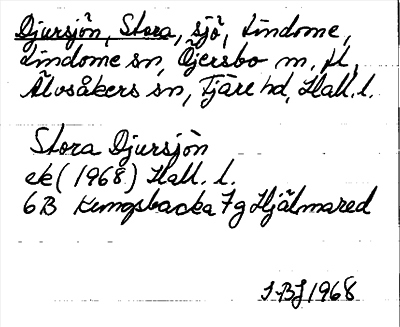 Djursjön, Stora, sjö, Lindome,
Lindome sn, Öjersbo m. fl.,
Älvsåkers sn, Fjäre hd, Hall. l.
Stora Djursjön
ek (1968) Hall. l.
6B Kungsbacka 7g Hjälmared
IBJ 1968